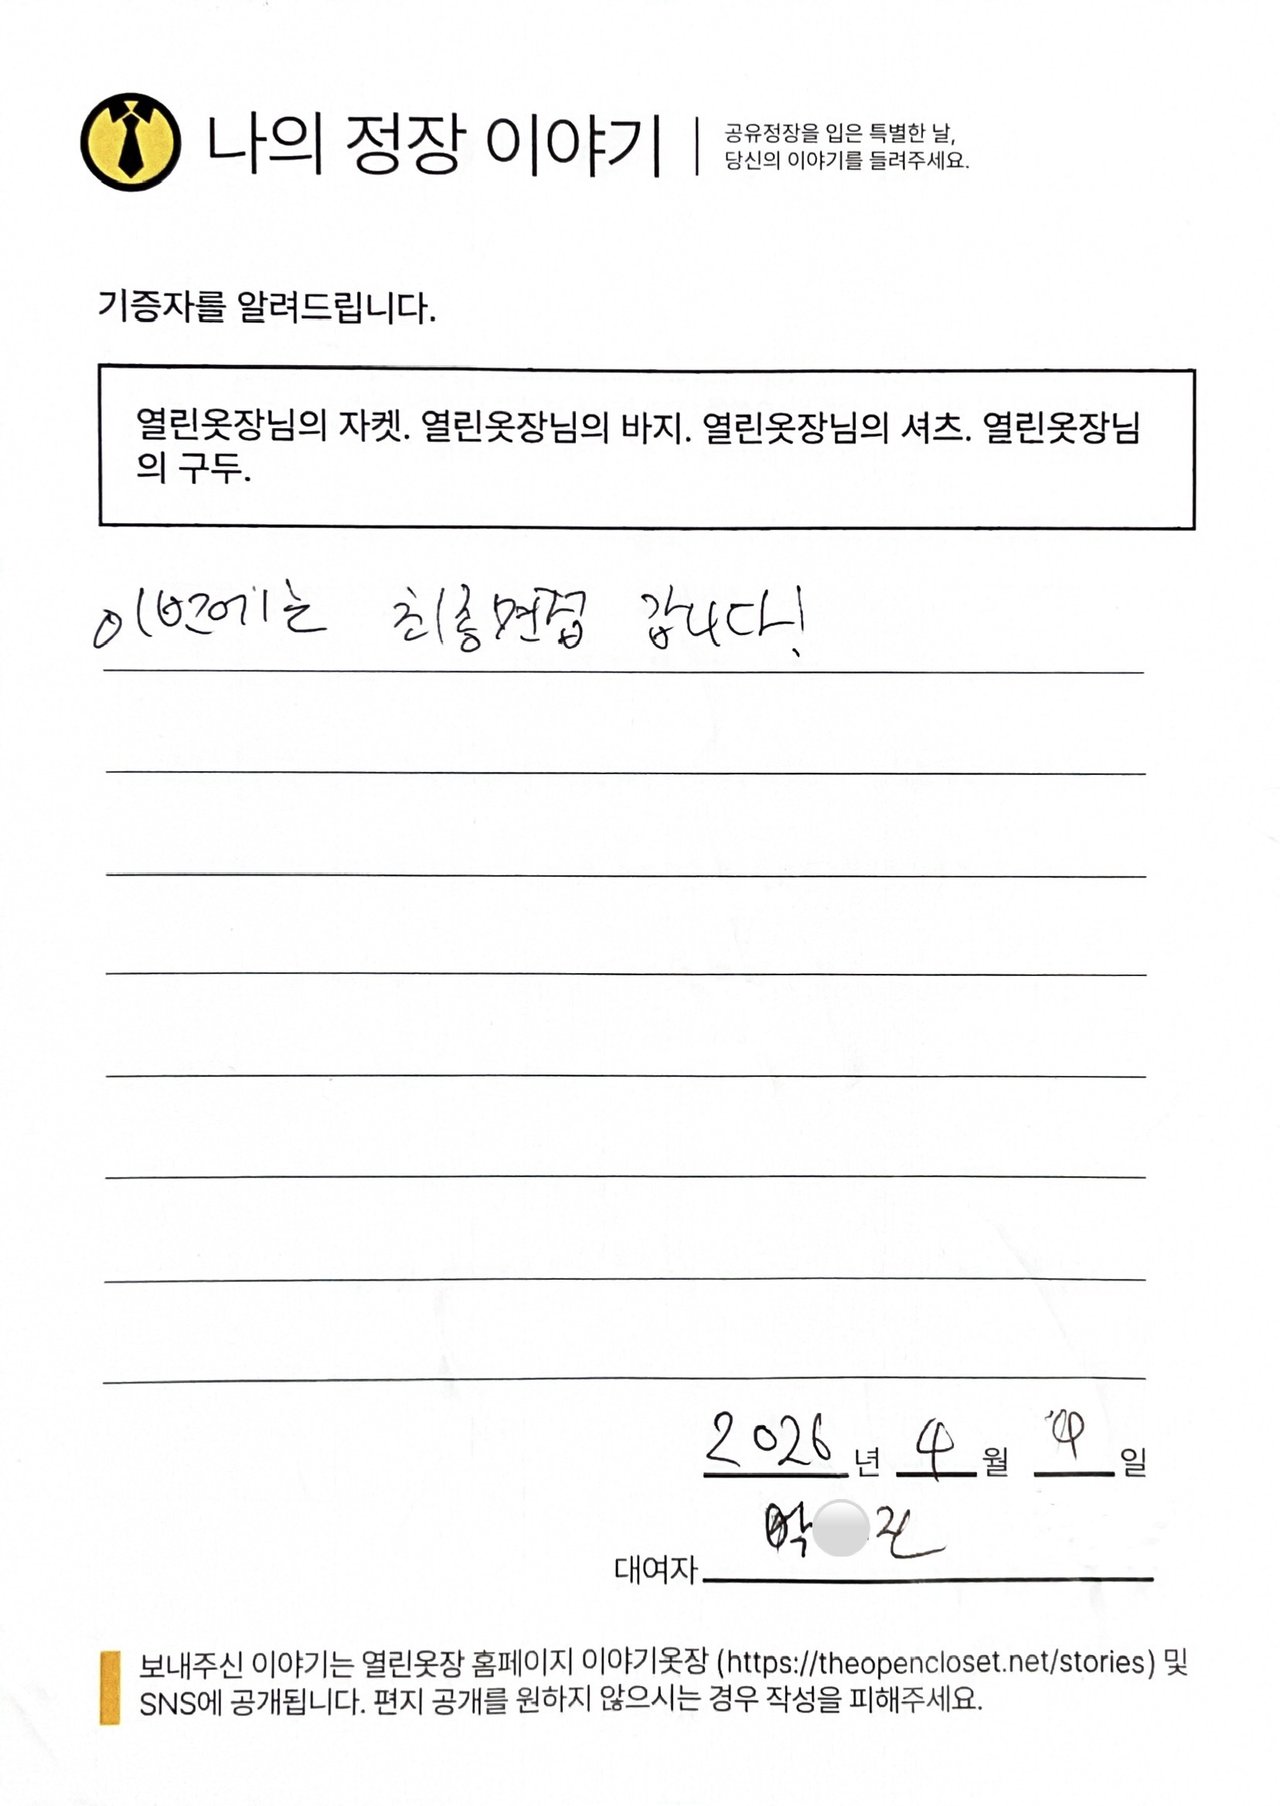 나의 정장 이야기
공유정장을 입은 특별한 날,
당신의 이야기를 들려주세요.
기증자를 알려드립니다.
열린옷장님의 자켓. 열린옷장님의 바지. 열린옷장님의 셔츠. 열린옷장님
의 구두.
이번에는 최종면접 갑니다!
2026년 4월 4일
대여자 박 진
보내주신 이야기는 열린옷장 홈페이지 이야기옷장 (https://theopencloset.net/stories) 및
SNS에 공개됩니다. 편지 공개를 원하지 않으시는 경우 작성을 피해주세요.